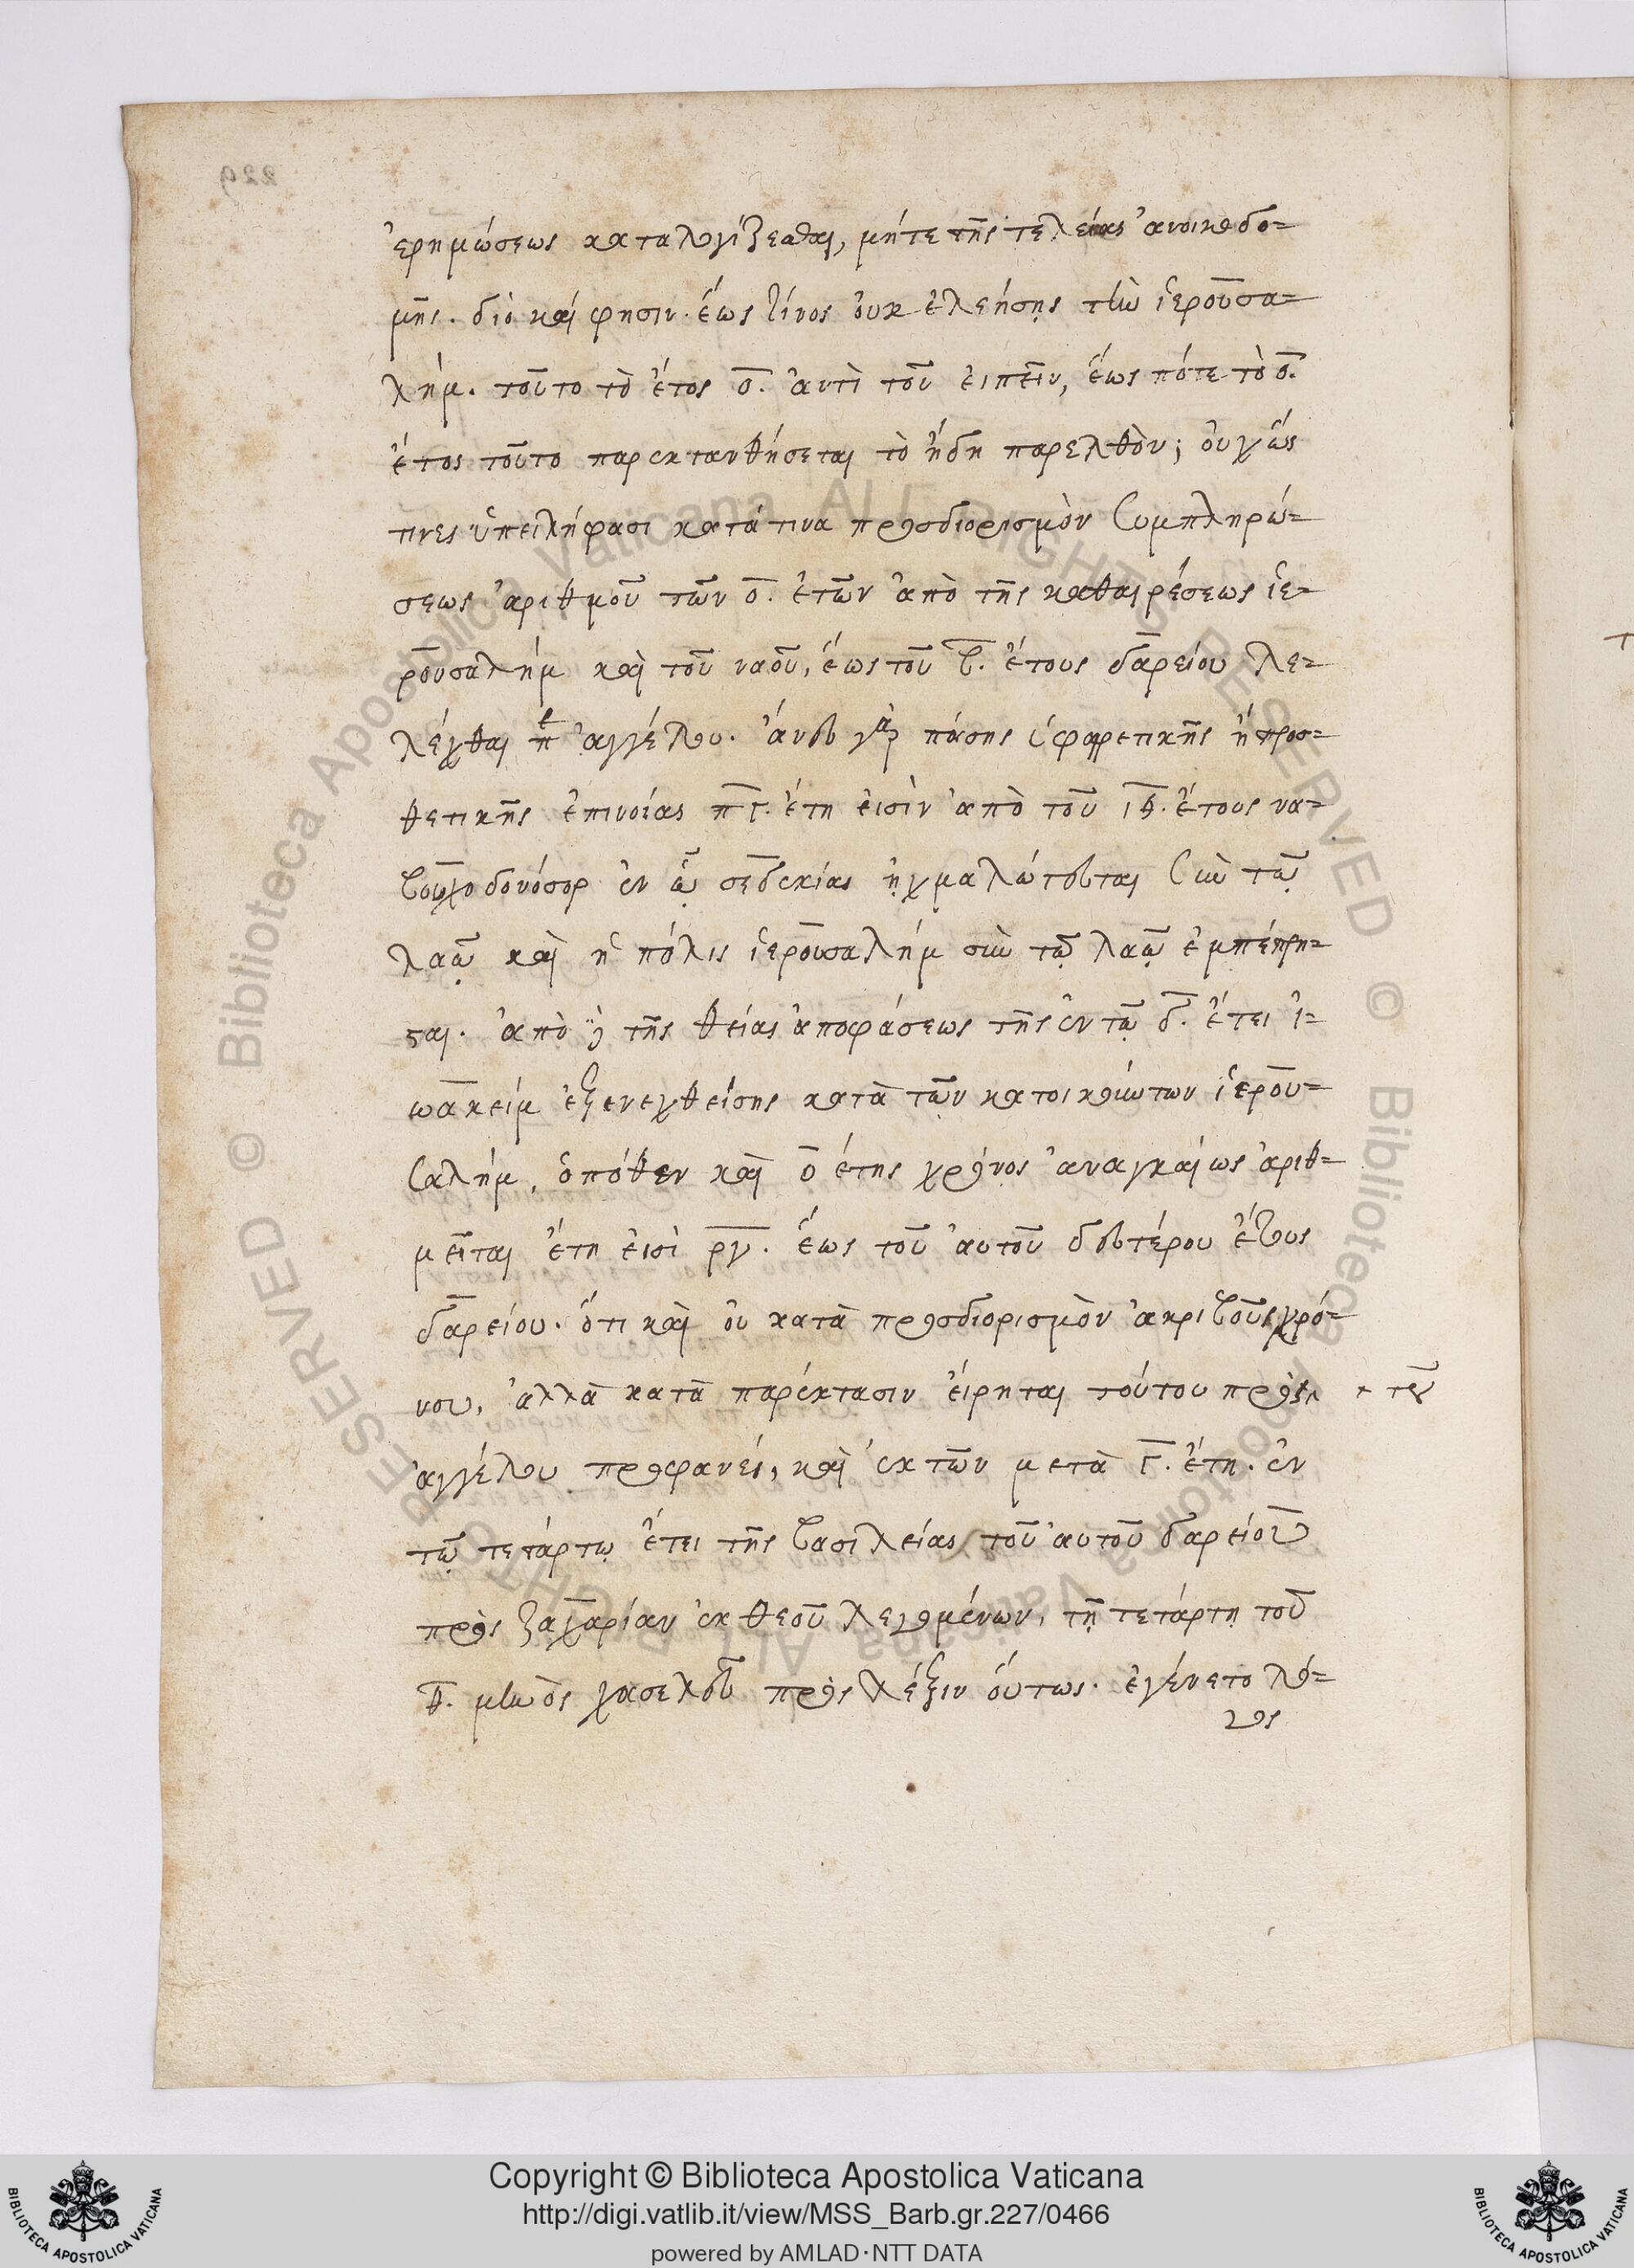 229
ἐρημώσεως καταλογίζεσθαι, μήτε τῆς τελείας ἀνοικοδο=
μῆς. διὸ καί φησιν. ἕως τίνος οὐκ ἐλεήσῃς τὴν ἱερουσα=
λήμ. τοῦτο τὸ ἔτος ο. ἀντὶ τοῦ εἰπεῖν, ἕως πότε τὸ ο.
ἔτος τοῦτο παρεκτανθήσεται τὸ ἤδη παρελθὸν; οὐχ ὥς
τινες ὑπειλήφασι κατά τινα προσδιορισμὸν συμπληρώ=
σεως ἀριθμοῦ τῶν ο. ἐτῶν ἀπὸ τῆς καθαιρέσεως ἱε=
ρουσαλήμ καὶ τοῦ ναοῦ, ἕως τοῦ β. ἔτους δαρείου λε=
λέχθαι ἀγγέλου. ἄνευ γὰρ πάσης ὑφαιρετικῆς ἢ προσ=
θετικῆς ἐπινοίας πγ. ἔτη εἰσὶν ἀπὸ τοῦ ἔτους να=
βουχοδονόσορ ἐν ᾧ σεδεκίας ᾐχμαλώτευται σὺν τῷ
λαῷ καὶ ἡ πόλις ἱερουσαλήμ σὺν τῷ λαῷ ἐμπέπρη=
σται. ἀπὸ δὲ τῆς θείας ἀποφάσεως τῆς ἐν τῷ δ. ἔτει ἰ=
ωακείμ ἐξενεχθείσης κατὰ τῶν κατοικούντων ἱερου=
σαλήμ, ὁπόθεν καὶ ὁ ο έτης χρόνος ἀναγκαίως ἀριθ=
μεῖται ἔτη εἰσὶ ργ. ἕως τοῦ αὐτοῦ δευτέρου ἔτους
δαρείου. ὅτι καὶ οὐ κατὰ προσδιορισμὸν ἀκριβοῦς χρό=
νου, ἀλλὰ κατὰ παρέκτασιν εἴρηται τούτου πρὸς
+ τοῦ
ἀγγέλου προφανὲς, καὶ ἐκ τῶν μετὰ γ. ἔτη. ἐν
τῷ τετάρτῳ ἔτει τῆς βασιλείας τοῦ αὐτοῦ δαρείου
πρὸς ζαχαρίαν ἐκ θεοῦ λεγομένων, τῇ τετάρτῃ τοῦ
θ. μηνὸς χασελεῦ πρὸς λέξιν οὕτως. ἐγένετο λό=
γος
Copyright © Biblioteca Apostolica Vaticana
http://digi.vatlib.it/view/MSS_Barb.gr.227/0466
powered by AMLAD·NTT DATA
BIBLIOTECA APOSTOLICA VATICANA
BIBLIOTECA APOSTOLICA VATICANA